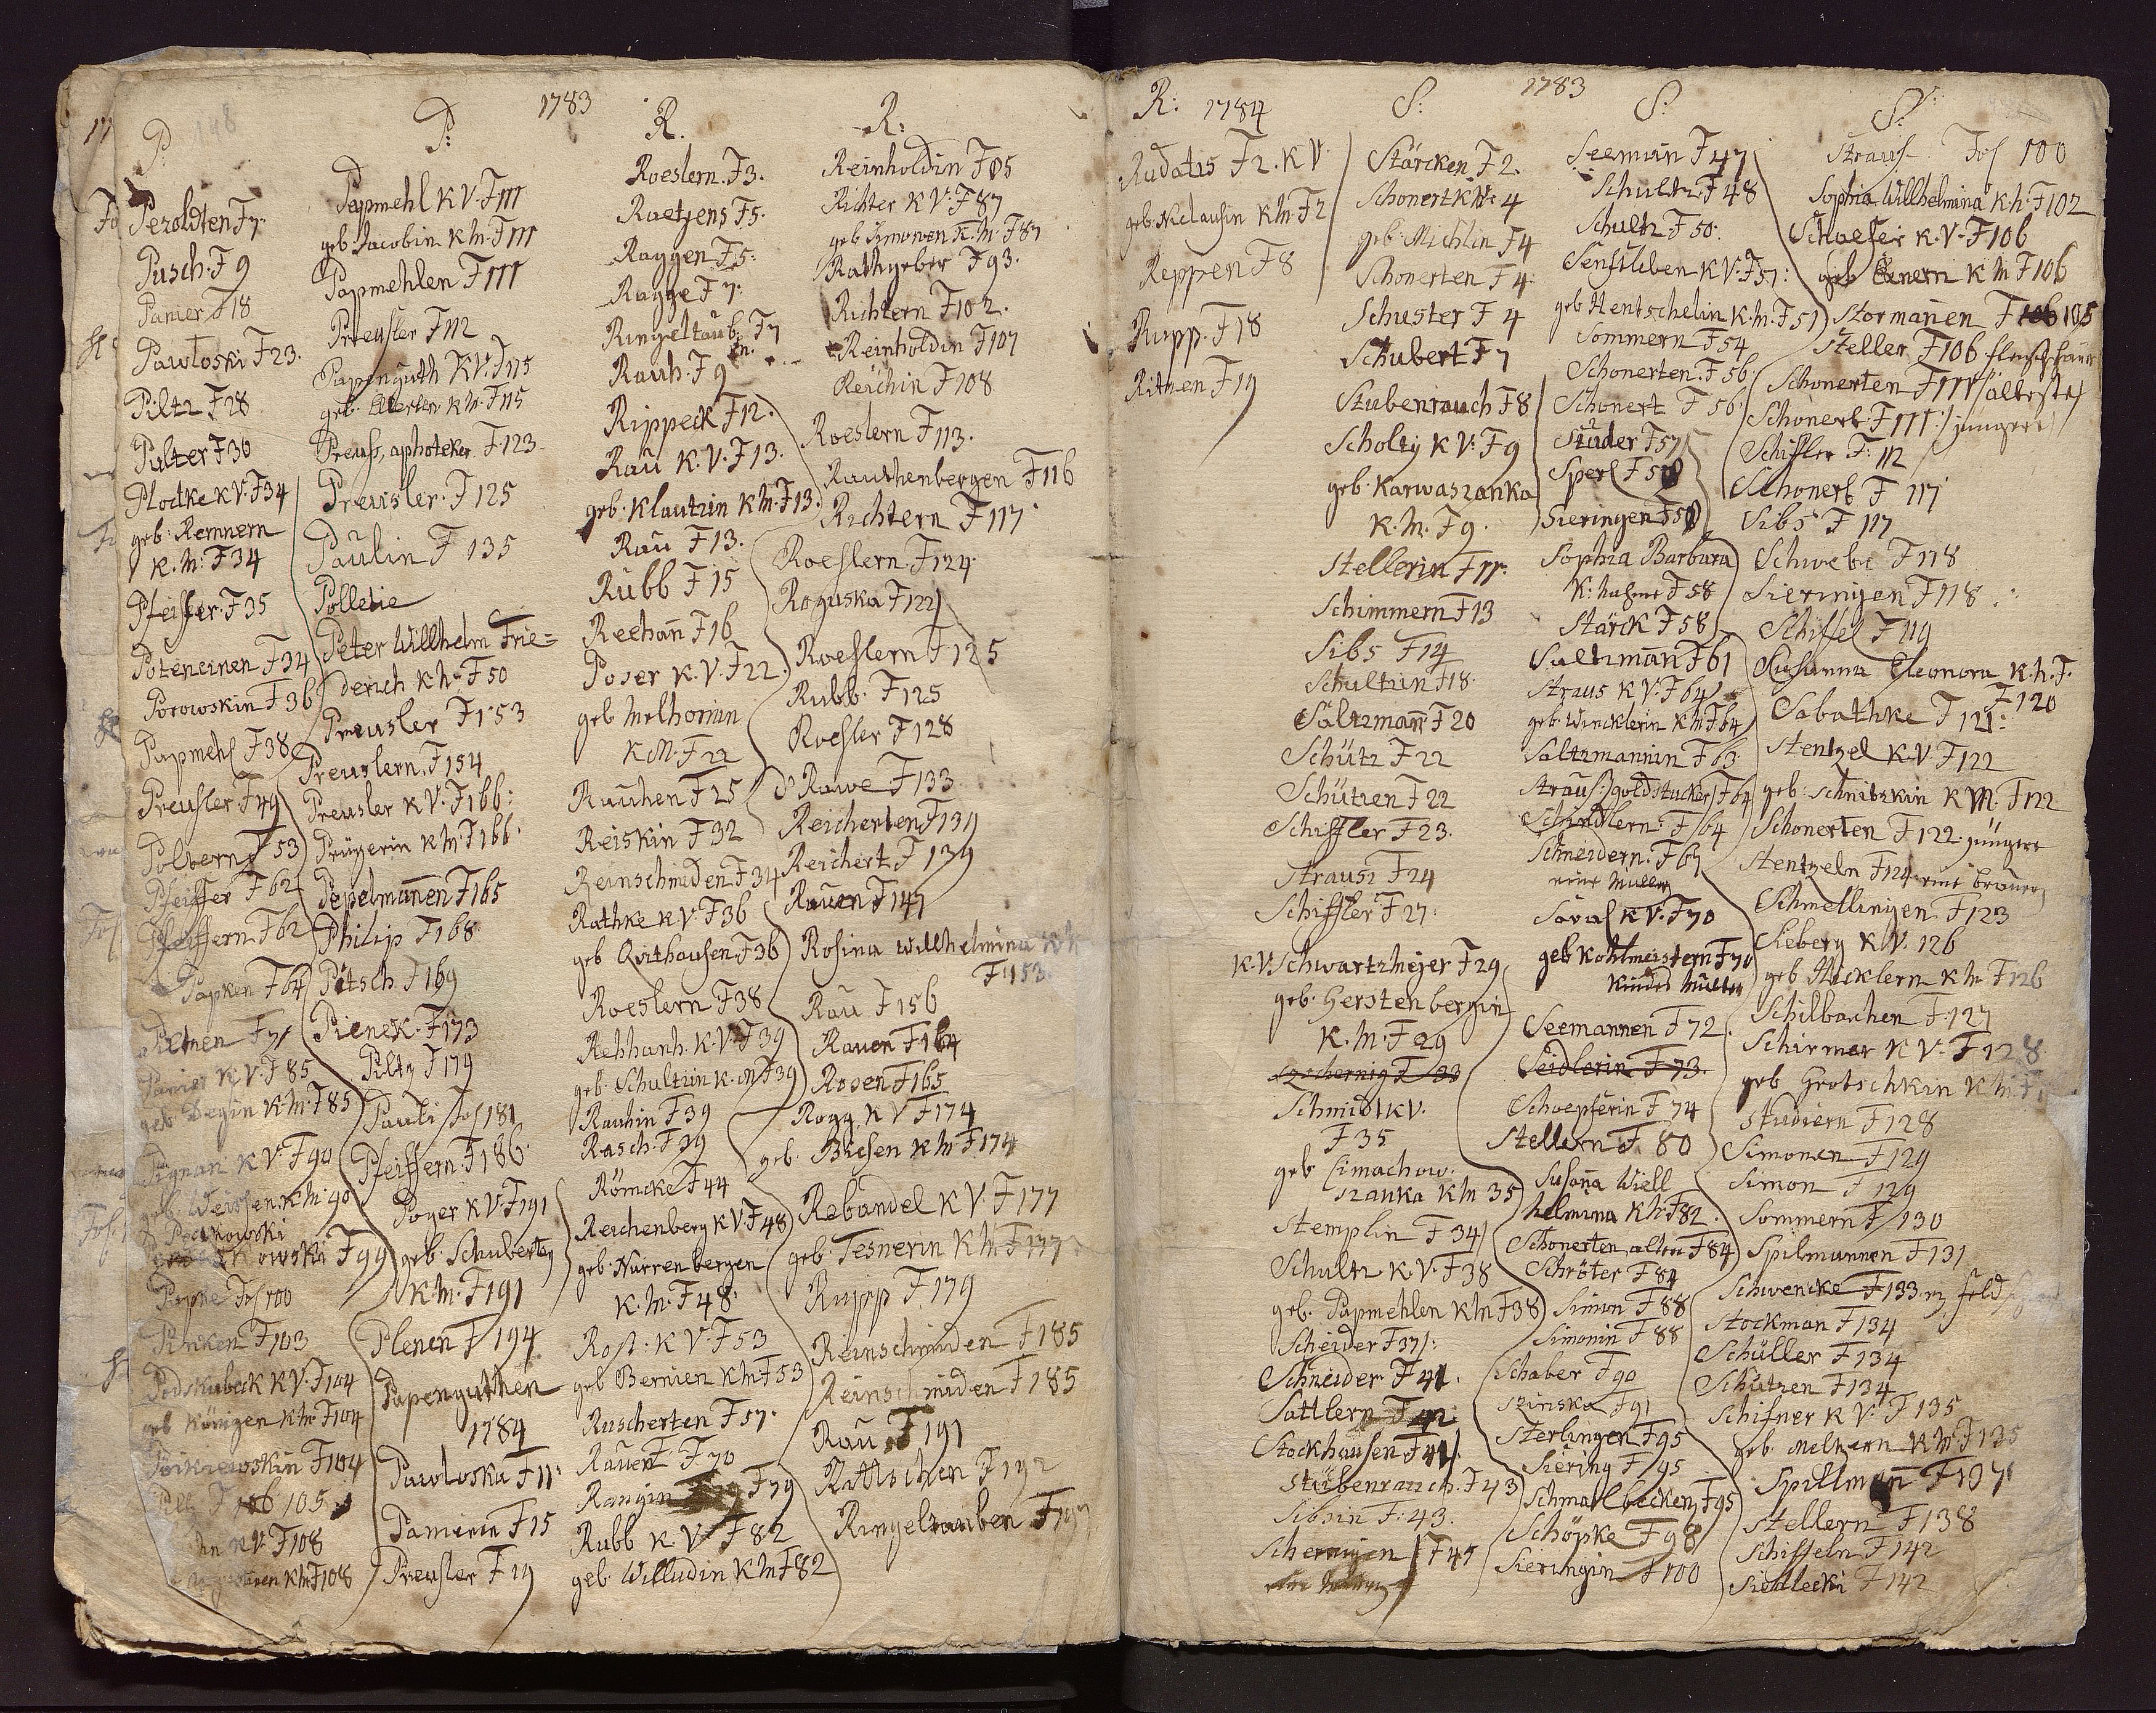 1783
P:
Pezoldten F 7.
Pusch. F 9
Panier F 18
Pawloski F 23.
Piltz F 28
Pulter F 30
Plodke K V. F 34
geb. Remnern
K. M: F 34
Pfeiffer. F 35
Poteneinen F 34
Porowskin F 36
Papmehl F 38
Preusler F 49
Polbern F 53
Pfeiffer F 62
Pfeiffern F 62
Papken F 64
F 71
Panier K V. F 85
geb Degin K. M. F 85
K V. F 90
geb. Weissen. K M. 90
Potkowski
F 99
Papke Fol 100
F 103
Podskubeck K V. F 104
geb Königen K M. F 104
F 104
105
K V. F 108
K M F 108
P:
Papmehl K V. F 111
geb Jacobin K M. F 111
Papmehlen F 111
Preusler F 112
Papenguth K V. F 115
geb. K M. F 115
Preuss, aphoteker F. 123.
Preusler. F 125
Paulin F 135
Polletie
Peter Willhelm Frie=
derich K h. F 50
Preusler F 153
Preuslern. F 154
Preusler K V. F 166:
Prügerin K M F 166.
Pepelmañen F 165
Philip F 168
Pötsch F 169
Pienek. F 173
Piltz F 179
Pauli Fol 181
Pfeiffern. F 186.
Poger K V. F 191
geb. Schuberten
K. M. F 191
Plenen F 194
Papenguthen
1784
Pawloska F 11.
Panierin F 15
Preusler F 19
R.
Roeslern. F 3.
Raetzens F 5.
Raggen F 5.
Ragge F 7.
Ringeltaub. F 7
Rauh. F 9
Rippeck F 12.
Rau K. V. F 13.
geb. Klautzin K M. F 13.
Rau F 13.
Rubb F 15
Reehañ F 16
Poser K. V. F 22.
geb Melhornin
K M. F 22
Rauhen F 25
Reiskin F 32
Reinschmiden F 34
Rathke K V. F 36
geb Qvithausen F 36
Roeslern. F 38
Rehhanh. K. V. F 39
geb. Schultzin K. M F 39
Rauhin F 39
Rasch. F 39
Römcke F 44
Reichenberg K V. F 48
geb. Nurrenbergen
K. M. F 48.
Rost: K V. F 53
geb Bernien K M. F 53
Ruscherten F 57.
Rauen F 70
Rangin F 79
Rubb K. V. F 82
geb. Willudin K M F 82
R:
Reinholdin F 85
Richter K V. F 87
geb Simonen K. M. F 87
Rathgeber F 93.
Richtern F 102.
Reinholdin F 107
Reichin F 108
Roeslern F 113.
Rauthenbergen F 116
Richtern F 117
Roeslern. F 124.
Roguska F 122
Roeslern F 125
Rubb. F 125
Roesler F 128
Rawe F 133
Reicherten F 139
Reichert. F 139
Rauen F 147
Rosina Willhelmina K h
F 153.
Rau F 156
Rauen F 164
Rosen F 165
Rogg. K V F 174
geb. Biesen K M F 174
Rebandel K V. F 177
geb. Tesnerin K M F 177
Rupp F 179
Reinschmiden F 185
Reinschmiden F 185
Rau F 191
Rattschen F 192
Ringeltauben F 197
R: 1784
Rudatis F 2. K V.
geb. Nelausin K M. F 2
Reppen F 8
Rupp. F 18
Ritzen F 19
1783
S:
Stärcken F 2.
Schonert K V: 4
geb. Michlin F 4
Schonerten F 4.
Schuster F 4
Schubert F 7
Stubenrauch F 8
Scholtz K V: F 9
geb. Karwaszanka
K. M. F 9.
Stellerin F 11.
Schimmern F 13
Sibs F 14
Schultzin F 18.
Saltzmañ F 20
Schütz F 22
Schützen F 22
Schiffler F 23.
Strausz F 24
Schiffler F 27.
K. V. Schwartzmejer F 29
geb. Gerstenbergin
K. M. F 29
Schmidt K V.
F 35
geb Simachow.
szanka K M 35
Stemplin F 34
Schultz K. V. F 38
geb. Papmehlen K M F 38
Scheider F 37.
Schneider F 41.
Sattlern F 42
Stockhausen F 41
Stubenrauch. F 43
Sibsin F. 43.
Scheringen F 45
S:
Seeman F 47
Schultz F 48
Schultz F 50.
Senftleben K V. F 51:
geb Hentschelin K. M. F 51
Sommern F 54
Schonerten. F 56.
Schonert F 56
Studer F 57
Sperl F 58
Sieringen F 58
Sophia Barbara
F 58
Stärck F 58
Saltzmañ F 61
Straus K V. F 64
geb. Wincklerin K M F 64
Saltzmannin F 63.
Straus goldstucker F 64
Schindlern. F 64
Schneidern. F 67
eine Muller
K V. F 70
geb Kohlmeistern F 70
Kindes Mutter
Seemannen F 72.
Seidlerin F 73.
Schoepferin F 74
Stellern F 80
Susaña Wiell
helmina K h. F 82.
Schonerten, alten F 84
Schröter F 84
Simon F 88
Simonin F 88
Schaber F 90
Szinska F 91
Sterlingen F 95
Siering F 95
Schmalbecken F 95
Schöpke F 98
Sieringin F 100
S:
Straus Fol 100
Sophia Willhelmina K h. F 102
Schaefer K. V. F 106
geb K M F 106
Stormanen F 105
Steller F 106
Schonerten F 111 älteste
Schonert. F 111. jüngere
Schiffler F. 112
Schonert F 117
Sibs F 117
Schwebe F 118
Sieringen F 118
Schiffel F 119
Susanna Eleonora K. h. F.
F 120
Sabathke F 121:
Stentzel K V F 122
geb. Schnitzkin K M. F 122
Schonerten F 122. jüngere
Stentzeln F 124
Schmellingen F 123
Seberg K V. 126
geb Stecklern K M. F 126
Schilbachen F. 127
Schirmer K V. F 128
geb Grotschkin K M. F
Studiern F 128
Simonen F 129
Simon F 129
Sommern F 130
Spilmannen F 131
Schwencke F 133
Stockman F 134
Schüller F 134
Schützen F 134
Schifner K V. F 135
geb. Meltzern K M. F 135
Spillmañ F 137
Stellern F 138
Schiffeln F 142
Siedlecki F 142